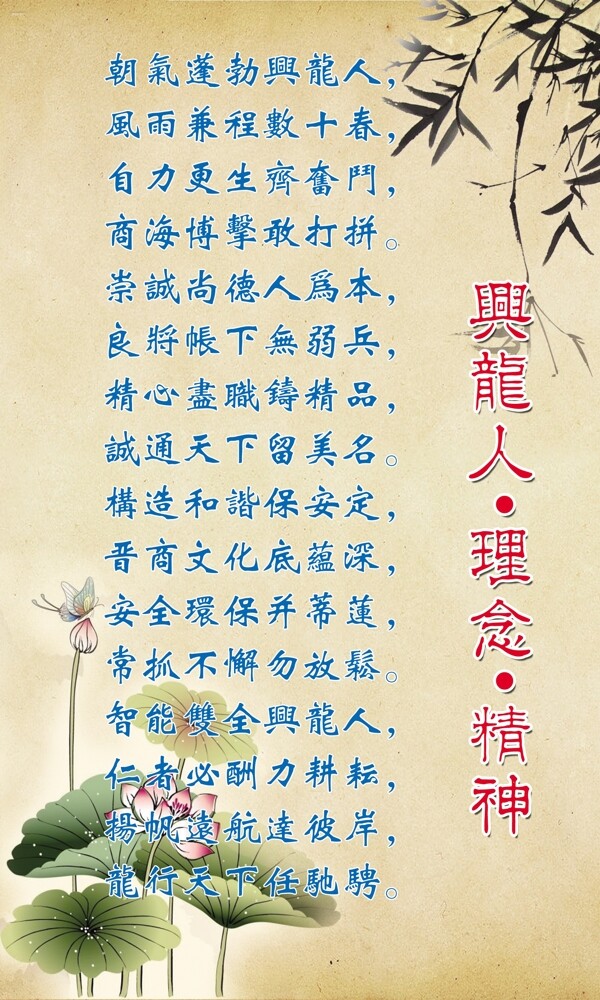 興龍人·理念·精神
朝氣蓬勃興龍人，
風雨兼程數十春，
自力更生齊奮鬥，
商海博擊敢打拼。
崇誠尚德人爲本，
良將帳下無弱兵，
精心盡職鑄精品，
誠通天下留美名。
構造和諧保安定，
晋商文化底蘊深，
安全環保并蒂蓮，
常抓不懈勿放鬆。
智能雙全興龍人，
仁者必酬力耕耘，
揚帆遠航達彼岸，
龍行天下任馳騁。